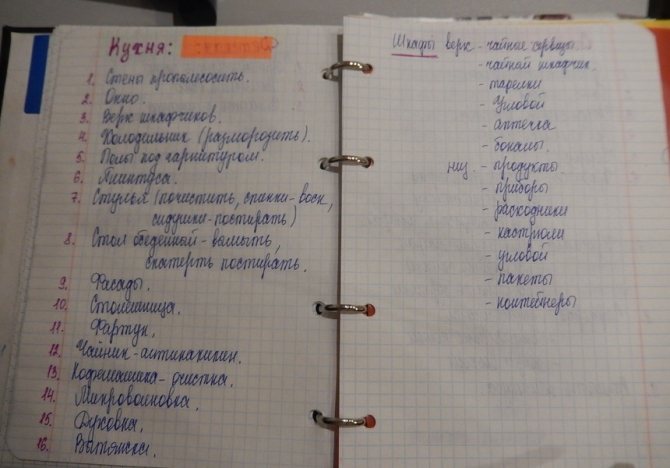 Кухня:
1. Стены пропылесосить.
2. Окно.
3. Верх шкафчиков.
4. Холодильник (разморозить).
5. Полы под гарнитуром.
6. Плинтуса.
7. Стулья (почистить, спинки-воск,
сидушки-постирать)
8. Стол обеденной - вымыть,
скатерть постирать.
9. Фасады.
10. Столешница.
11. Фартук.
12. Чайник-антинакипин.
13. Кофемашика-очистка.
14. Микроволновка.
15. Духовка.
16. Вытяжка.
Шкафы верх - чайные сервизы
- чайной шкафчик.
- тарелки
- угловой
- аптечка
- бокалы.
низ. - продукты
- приборы
- расходники
- кастрюли
- угловой
- пакеты
- контейнеры